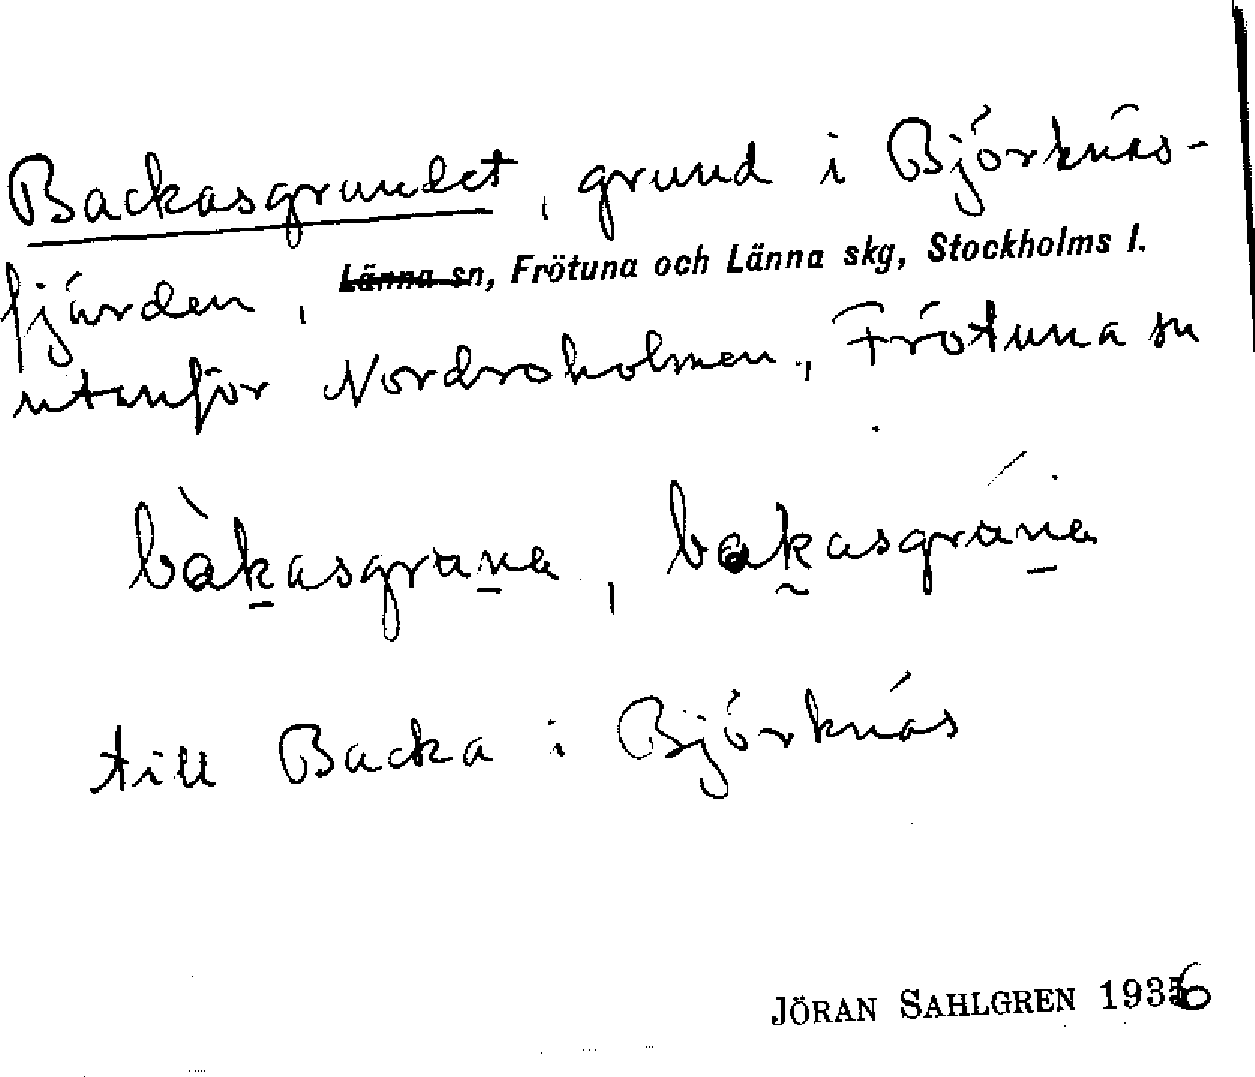 Backasgrundet, grund i Björknäs-
fjärden, Länna sn, Frötuna och Länna skg, Stockholms l.
utanför Nordroholmen, Frötuna sn
bàkasgrana, bakasgrána
till Backa i Björknäs
JÖRAN SAHLGREN 1936